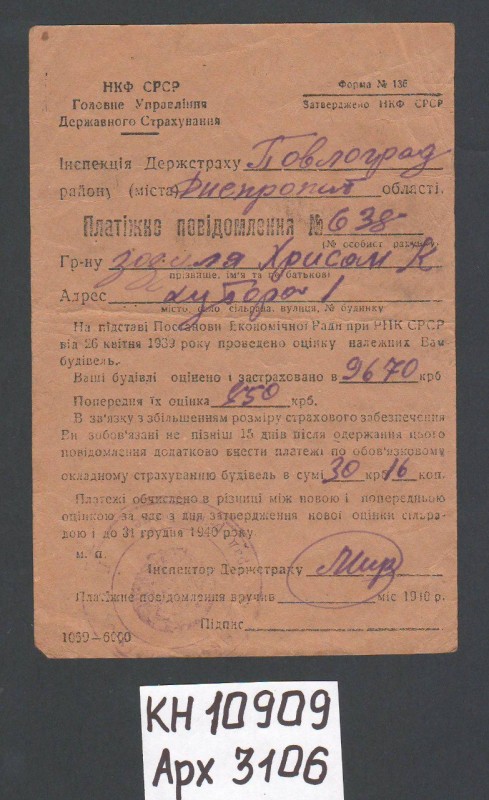 НКФ СРСР
Головне Управління
Державного Страхування
Форма № 136
Затверджено НКФ СРСР
Інспекція Держстраху Повлоград
району (міста) Днепропет області.
Платіжне повідомлення № 638
(№ особист рахунку)
Гр-ну Хрисан К
прізвище, ім'я та по батькові
Адрес 1
місто, село сільрада, вулиця, № будинку
На підставі Постанови Економічної Ради при РНК СРСР
від 26 квітня 1939 року проведено оцінку належних Вам
будівель.
Ваші будівлі оцінено і застраховано в 9670 крб
Попередня їх оцінка 850 крб.
В зв'язку з збільшенням розміру страхового забезпечення
Ви зобов'язані не пізніш 15 днів після одержання цього
повідомлення додатково внести платежі по обов'язковому
окладному страхуванню будівель в сумі 30 крб 16 коп.
Платежі обчислено в різниці між новою і попередньою
оцінкою за час з дня затвердження нової оцінки сільра-
дою і до 31 грудня 1940 року
м. п.
Інспектор Держстраху
Платіжне повідомлення вручив міс 1940 р.
Підпис
1039—6000
КН 10909
Арх 3106